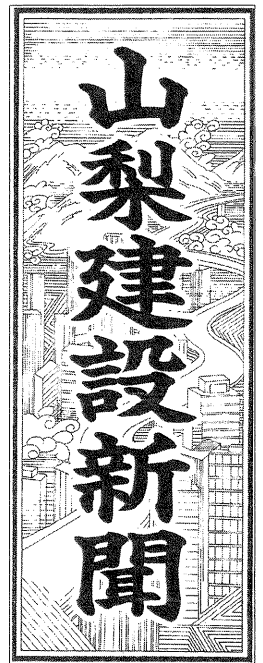 山梨建設新聞